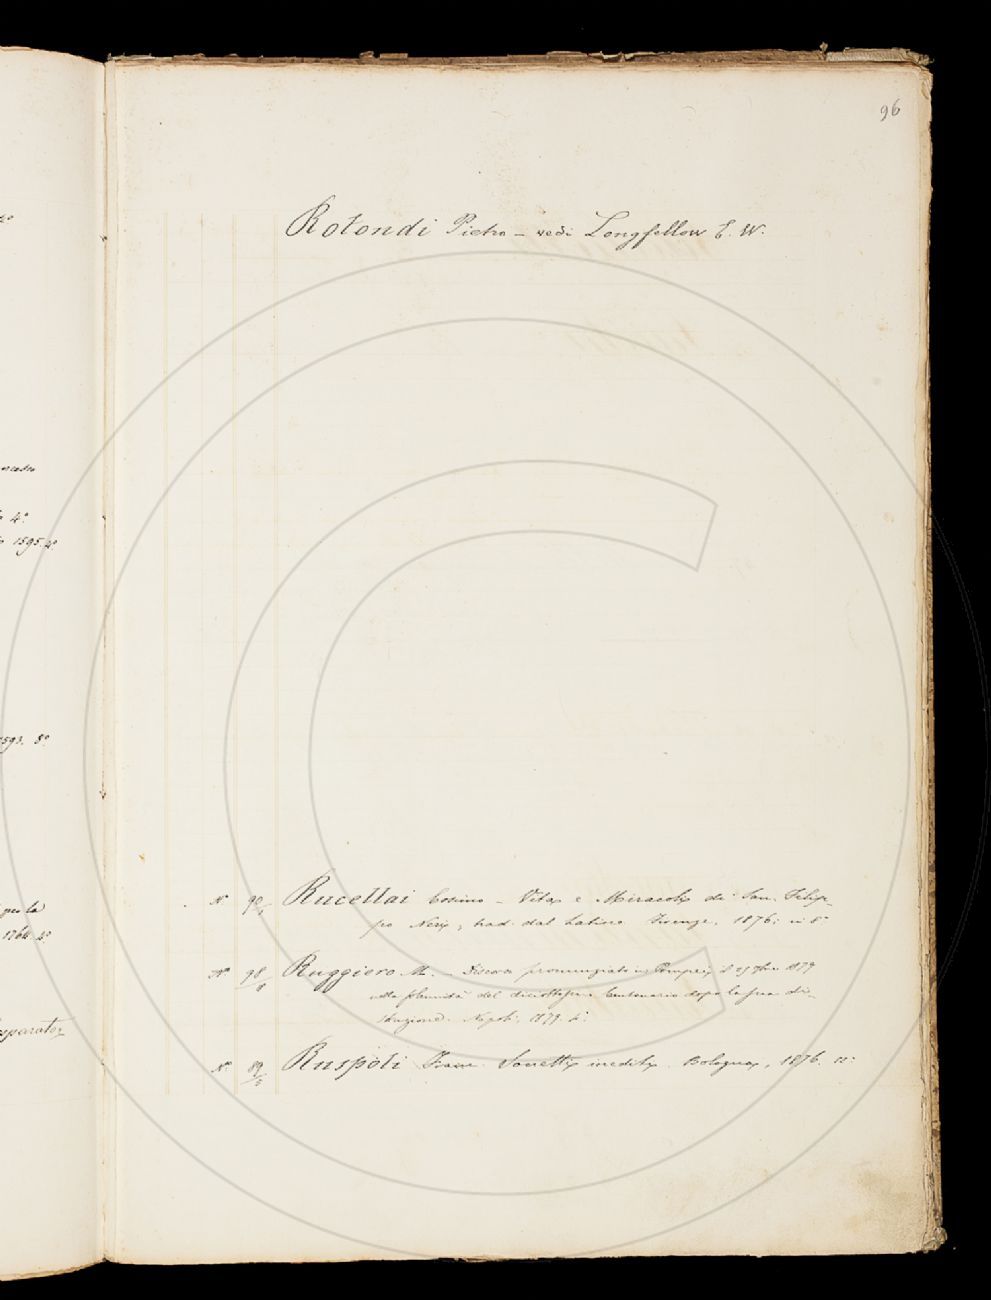 96
Rotondi Pietro - vedi Longfellow E. W.
N. 90 Rucellai Cosimo - Vita e Miracoli di San Filip-
po Neri, trad. dal Latino Firenze, 1876; in 8°
N. 98 Ruggiero M. - Discorso pronunziato in Pompei il 25 1879
nella del Centenario dopo la sua di-
struzione. Napoli. 1879. 4°
N. 89 Ruspoli Franc. Sonetti inediti. Bologna, 1876. 12°
4°
1595. 4°
1593. 8°
per la
1764. 4°